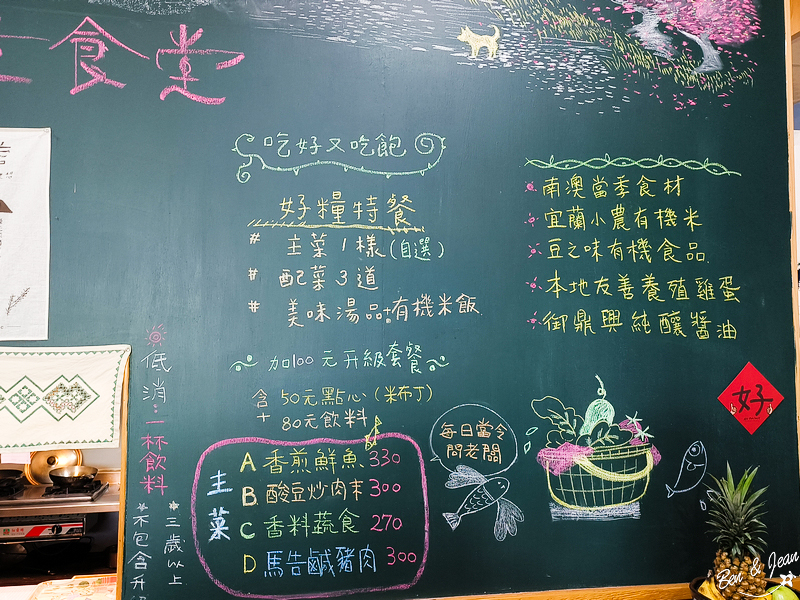 食堂
吃好又吃飽
好糧特餐
# 主菜1樣(自選)
# 配菜3道
# 美味湯品+有機米飯
加100元升級套餐
含50元點心(米布丁)
+ 80元飲料
主菜
A 香煎鮮魚 330
B 酸豆炒肉末 300
C 香料蔬食 270
D 馬告鹹豬肉 300
低消:一杯飲料
*三歲以上
*不包含升
每日當令
問老闆
南澳當季食材
宜蘭小農有機米
豆之味有機食品
本地友善養殖雞蛋
御鼎興純釀醬油
好
Ben & Jean